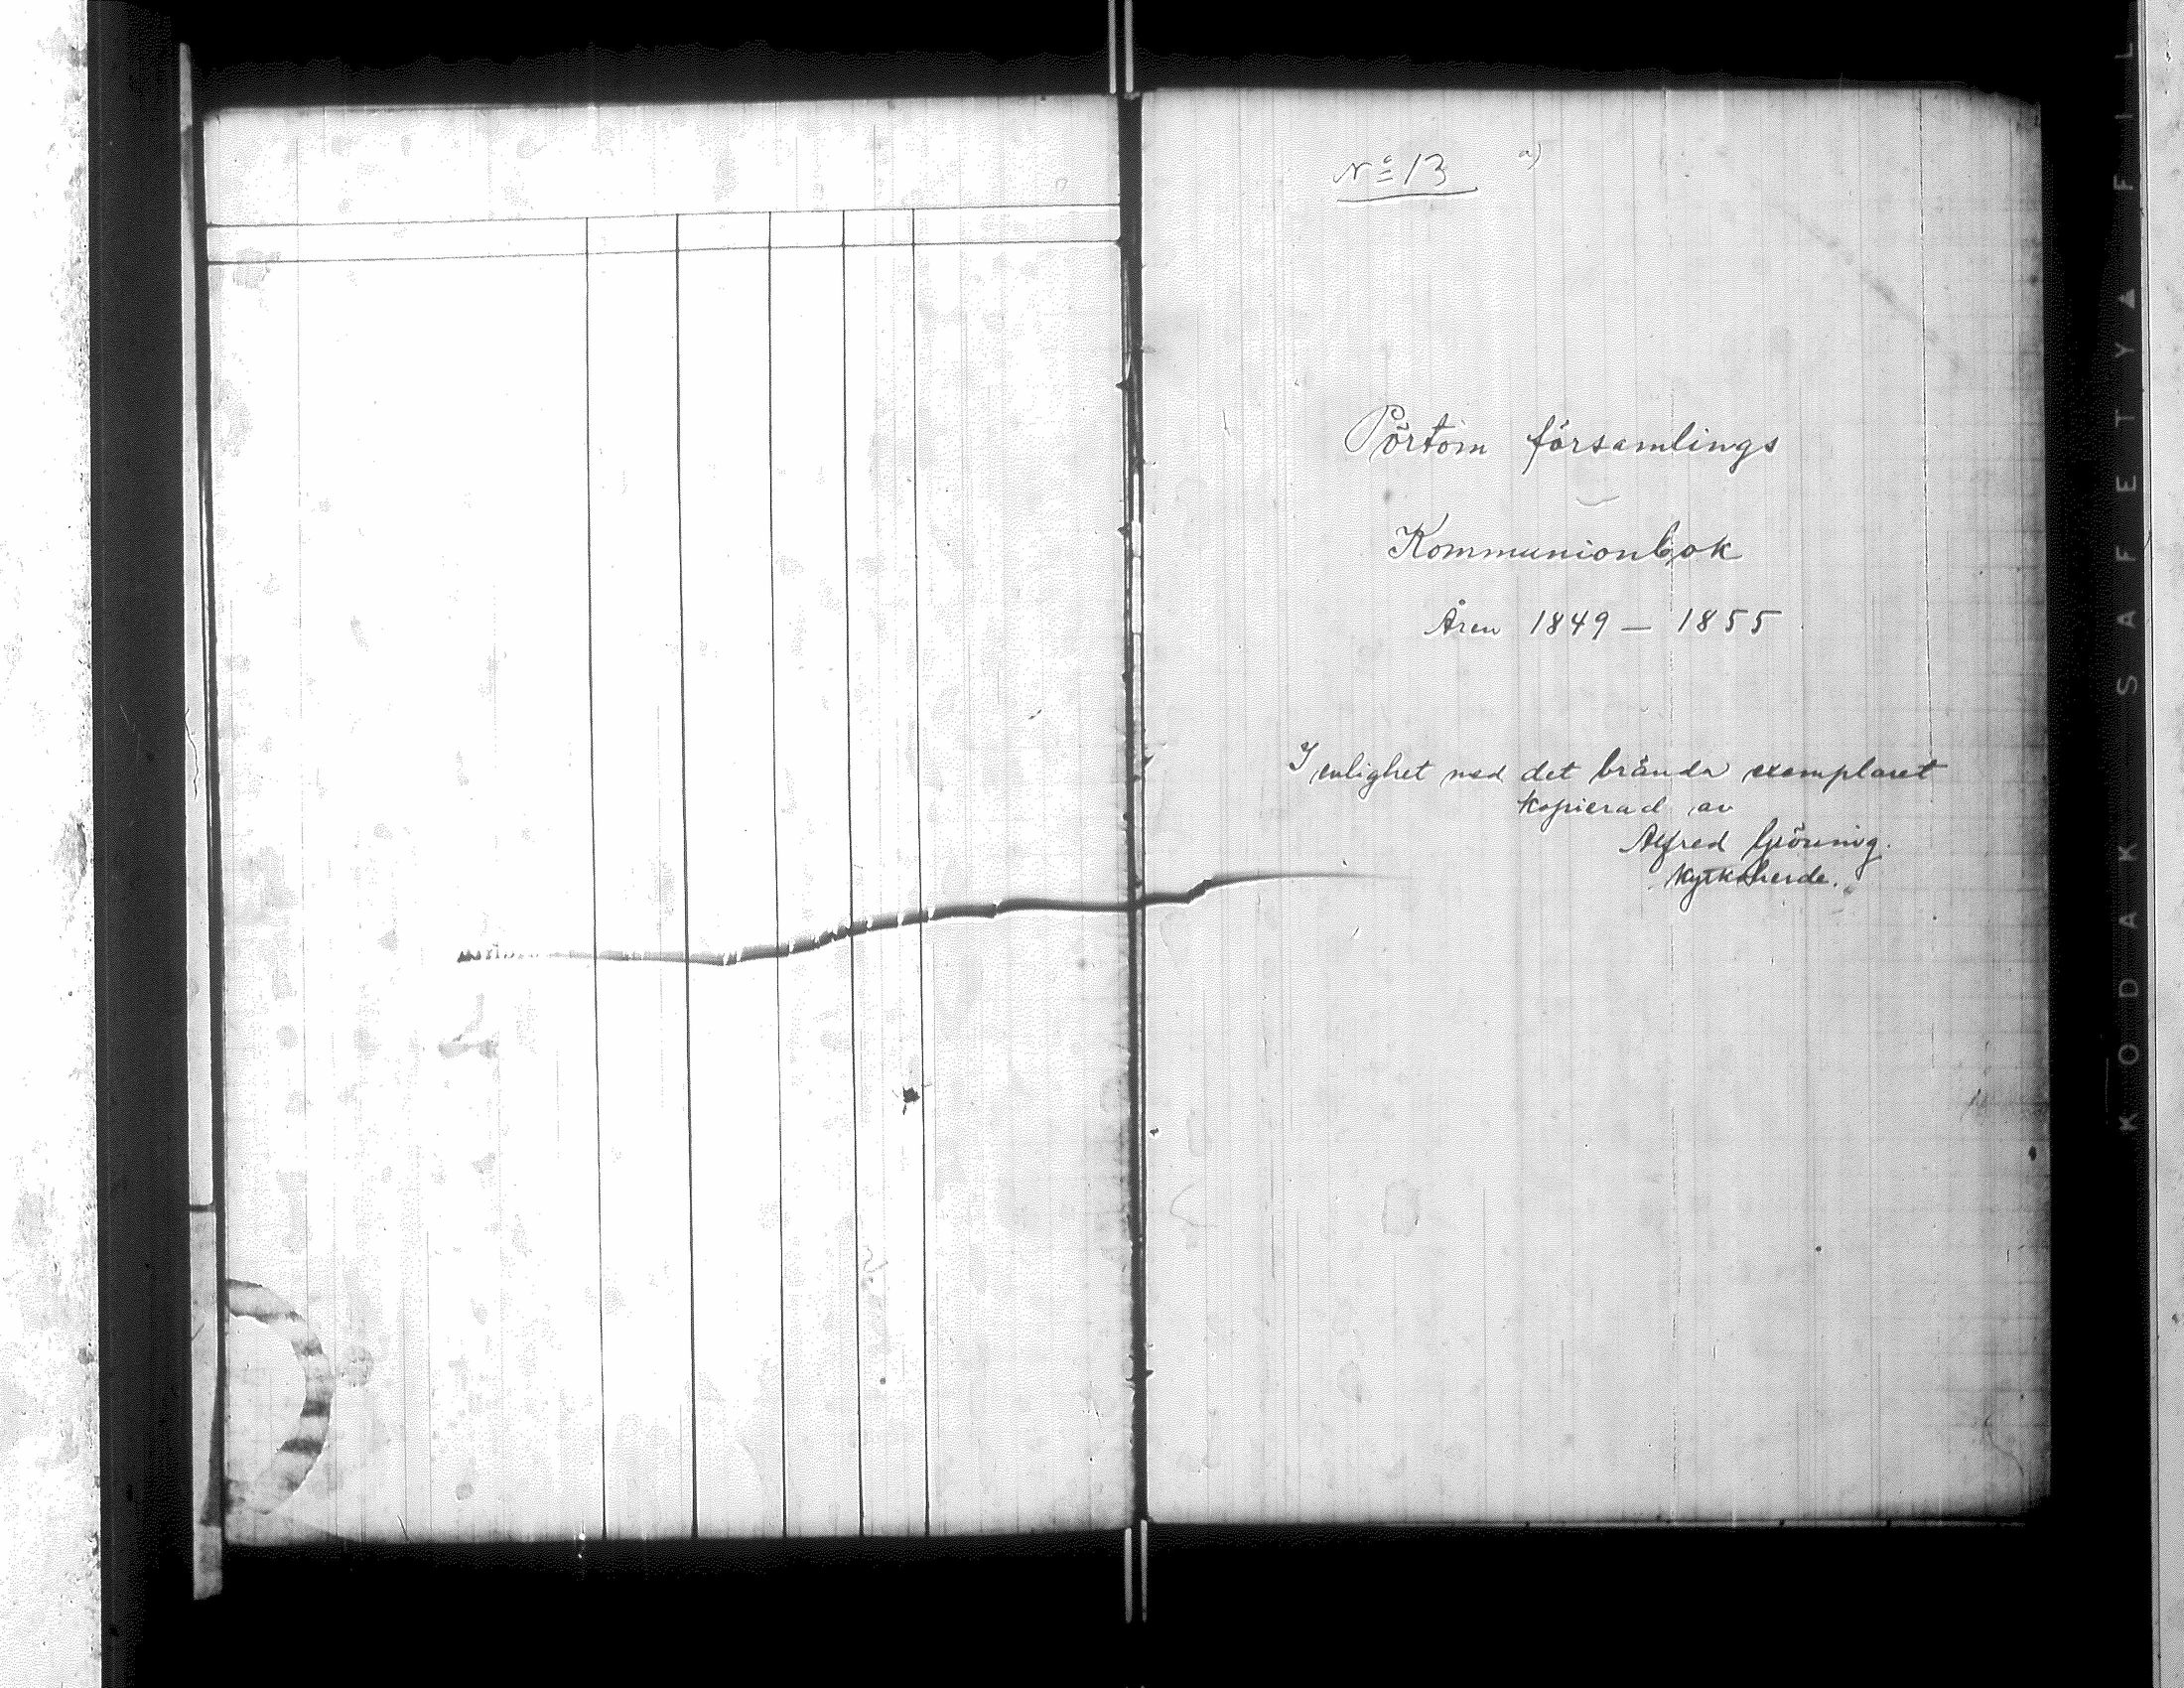 No 13 a)
Pörtom församlings
Kommunionbok
Åren 1849 — 1855
I enlighet med det brända exemplaret
kopierad av
Alfred
Kyrkoherde.
KODAK SAFETY FIL